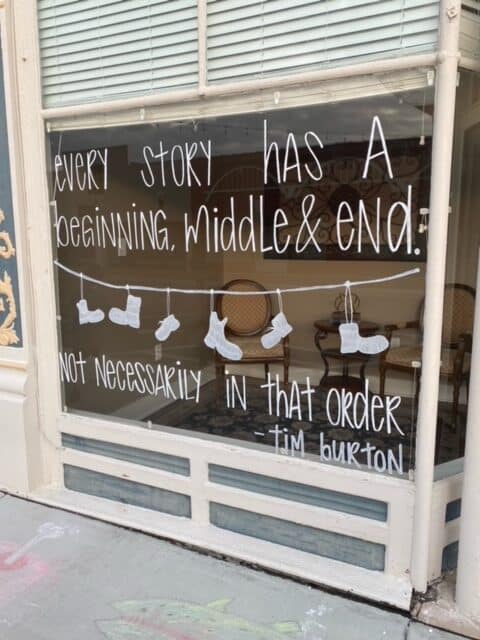 EVERY STORY HAS A
BEGINNING, MIDDLE & END.
NOT NECESSARILY IN THAT ORDER
-TIM BURTON